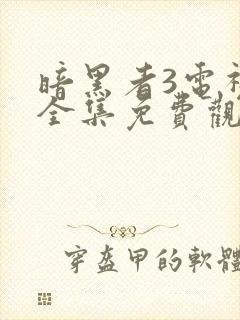 暗黑者3電視
全集免費觀
穿盔甲的軟體